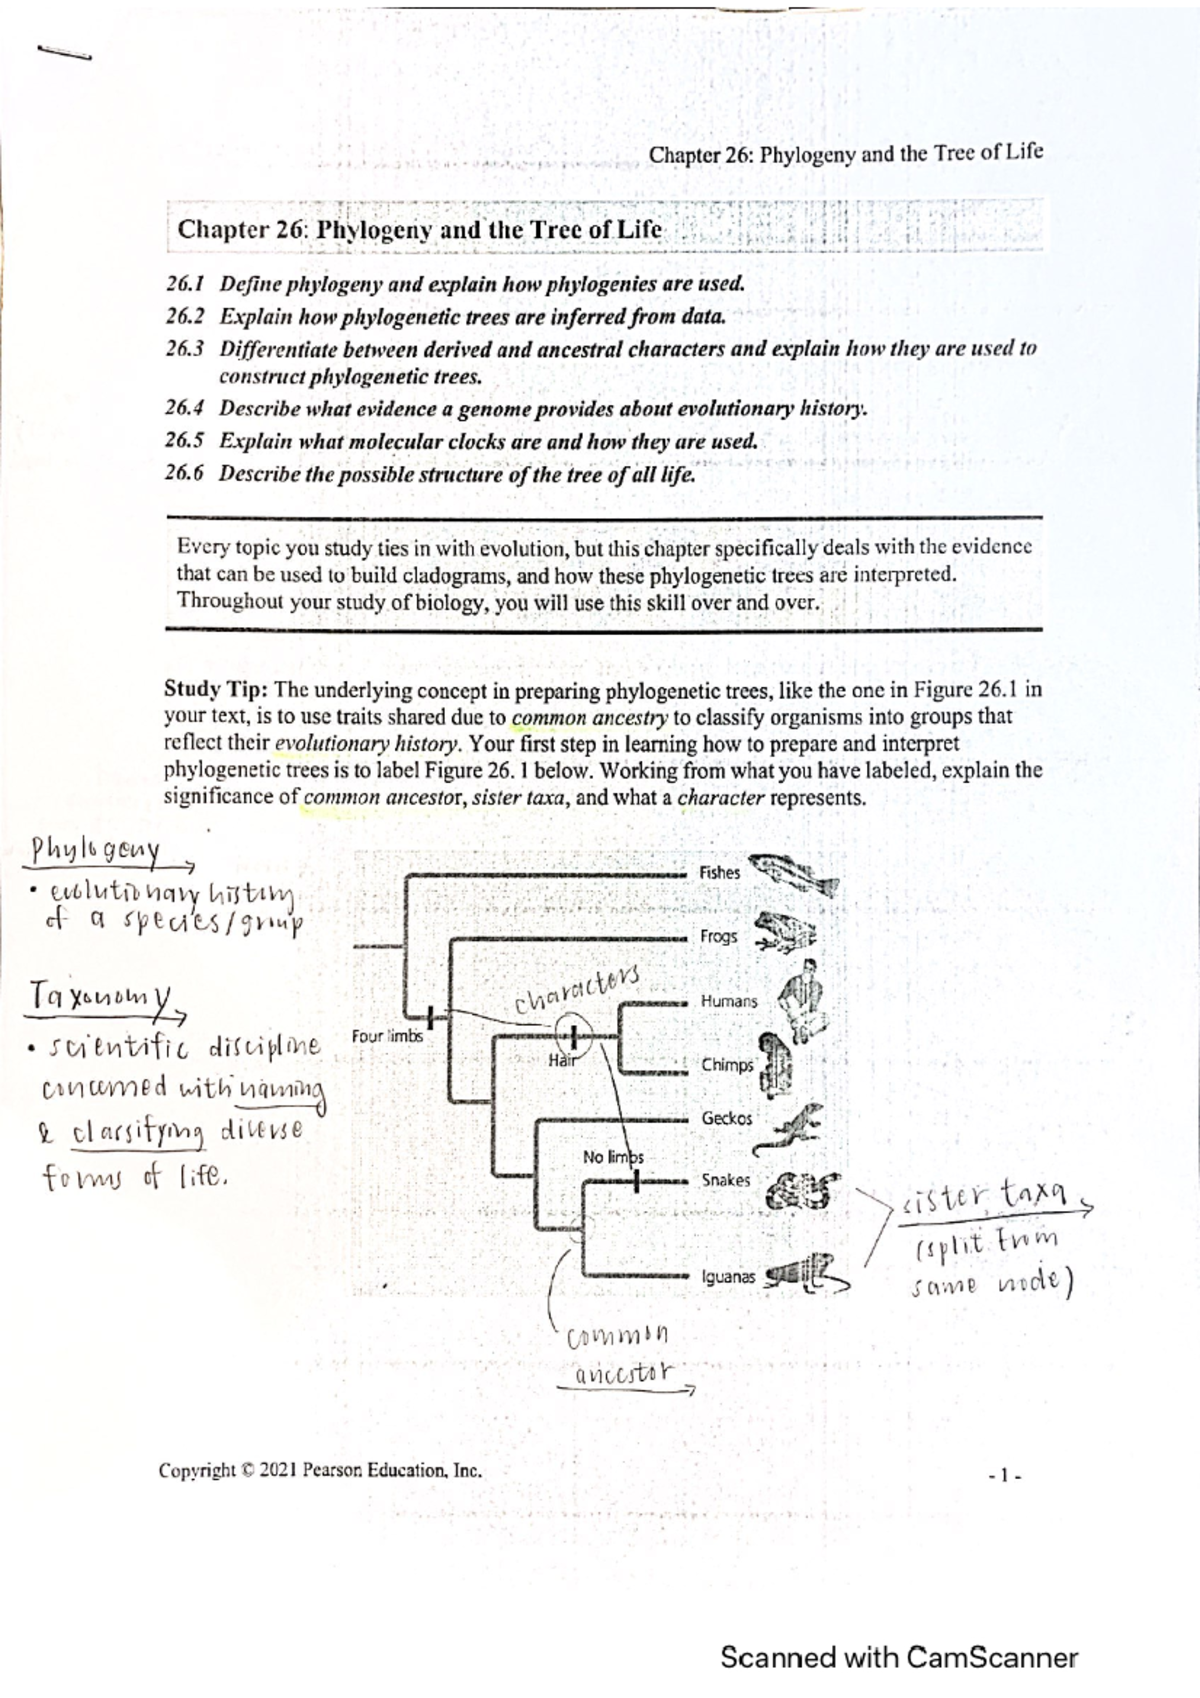 Chapter 26: Phylogeny and the Tree of Life
Chapter 26: Phylogeny and the Tree of Life
26.1 Define phylogeny and explain how phylogenies are used.
26.2 Explain how phylogenetic trees are inferred from data.
26.3 Differentiate between derived and ancestral characters and explain how they are used to
construct phylogenetic trees.
26.4 Describe what evidence a genome provides about evolutionary history.
26.5 Explain what molecular clocks are and how they are used.
26.6 Describe the possible structure of the tree of all life.
Every topic you study ties in with evolution, but this chapter specifically deals with the evidence
that can be used to build cladograms, and how these phylogenetic trees are interpreted.
Throughout your study of biology, you will use this skill over and over.
Study Tip: The underlying concept in preparing phylogenetic trees, like the one in Figure 26.1 in
your text, is to use traits shared due to common ancestry to classify organisms into groups that
reflect their evolutionary history. Your first step in learning how to prepare and interpret
phylogenetic trees is to label Figure 26. 1 below. Working from what you have labeled, explain the
significance of common ancestor, sister taxa, and what a character represents.
Phylogeny
• evolutionary history
of a species/group
Taxonomy
• scientific discipline
concerned with naming
& classifying diverse
forms of life.
Fishes
Frogs
characters
Humans
Four limbs
Hair
Chimps
Geckos
No limbs
Snakes
sister taxa
(split from
same node)
Iguanas
common
ancestor
Copyright © 2021 Pearson Education, Inc.
- 1 -
Scanned with CamScanner